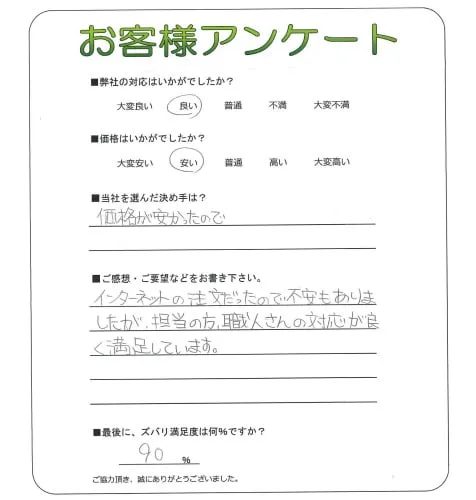 お客様アンケート
■弊社の対応はいかがでしたか？
大変良い 良い 普通 不満 大変不満
■価格はいかがでしたか？
大変安い 安い 普通 高い 大変高い
■当社を選んだ決め手は？
価格が安かったので
■ご感想・ご要望などをお書き下さい。
インターネットの注文だったので不安もありま
したが、担当の方、職人さんの対応が良
く満足しています。
■最後に、ズバリ満足度は何%ですか？
90 %
ご協力頂き、誠にありがとうございました。